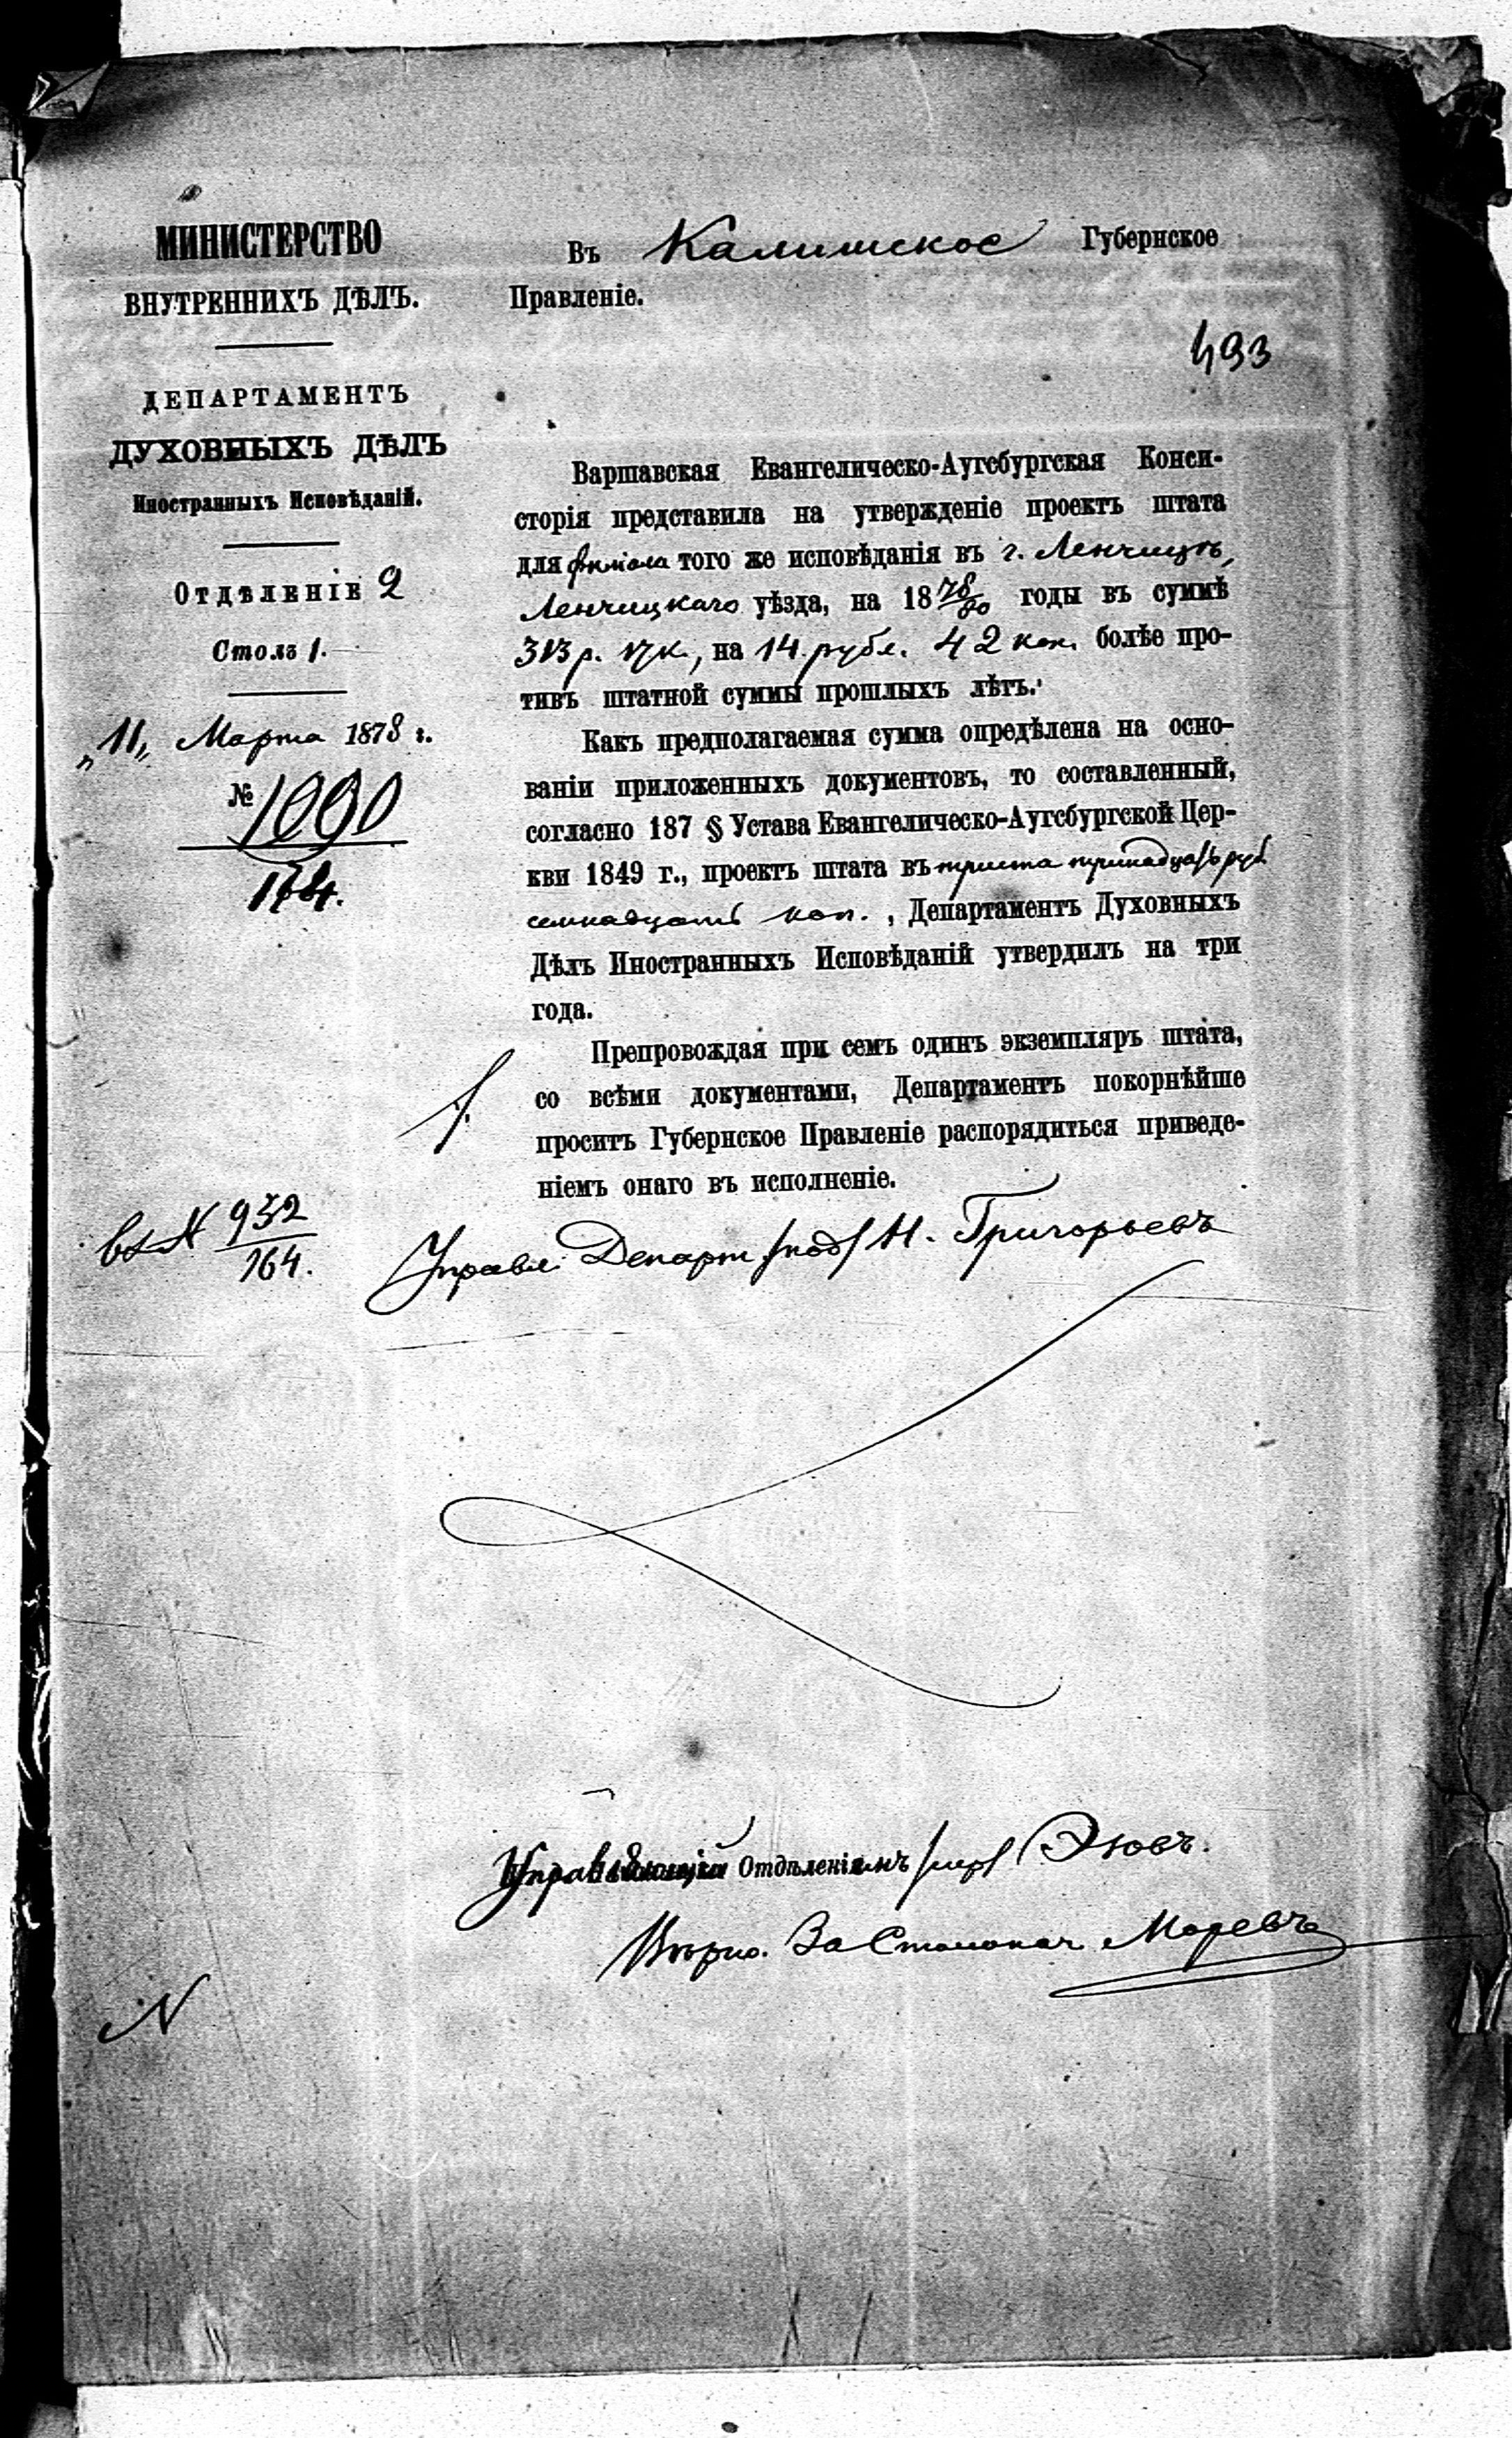 МИНИСТЕРСТВО
ВНУТРЕННИХЪ ДѢЛЪ.
ДЕПАРТАМЕНТЪ
ДУХОВНЫХЪ ДѢЛЪ
Иностранныхъ Исповѣданій.
Отдѣленіе 2
Столъ 1.
„11„ Марта 1878 г.
№ 1090
164.
вх N 932
164.
N
Въ Калишское Губернское
Правленіе.
493
Варшавская Евангелическо-Аугсбургская Конси-
сторія представила на утвержденіе проектъ штата
для филіала того же исповѣданія въ г. Ленчицѣ,
Ленчицкаго уѣзда, на 1878/80 годы въ суммѣ
313 р. 17 к., на 14 рубл. 42 коп. болѣе про-
тивъ штатной суммы прошлыхъ лѣтъ.
Какъ предполагаемая сумма опредѣлена на осно-
ваніи приложенныхъ документовъ, то составленный,
согласно 187 § Устава Евангелическо-Аугсбургской Цер-
кви 1849 г., проектъ штата въ триста тринадцать руб.
семнадцать коп., Департаментъ Духовныхъ
Дѣлъ Иностранныхъ Исповѣданій утвердилъ на три
года.
Препровождая при семъ одинъ экземпляръ штата,
со всѣми документами, Департаментъ покорнѣйше
проситъ Губернское Правленіе распорядиться приведе-
ніемъ онаго въ исполненіе.
Управл. Департ. /под/ Н. Григорьевъ
Управляющій Отдѣленіемъ Эзовъ.
Вѣрно. За Столонач. Маревъ